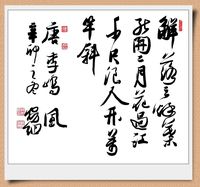 解落三秋葉
能開二月花過江
千尺浪入竹萬
竿斜
唐李嶠風
辛卯之冬